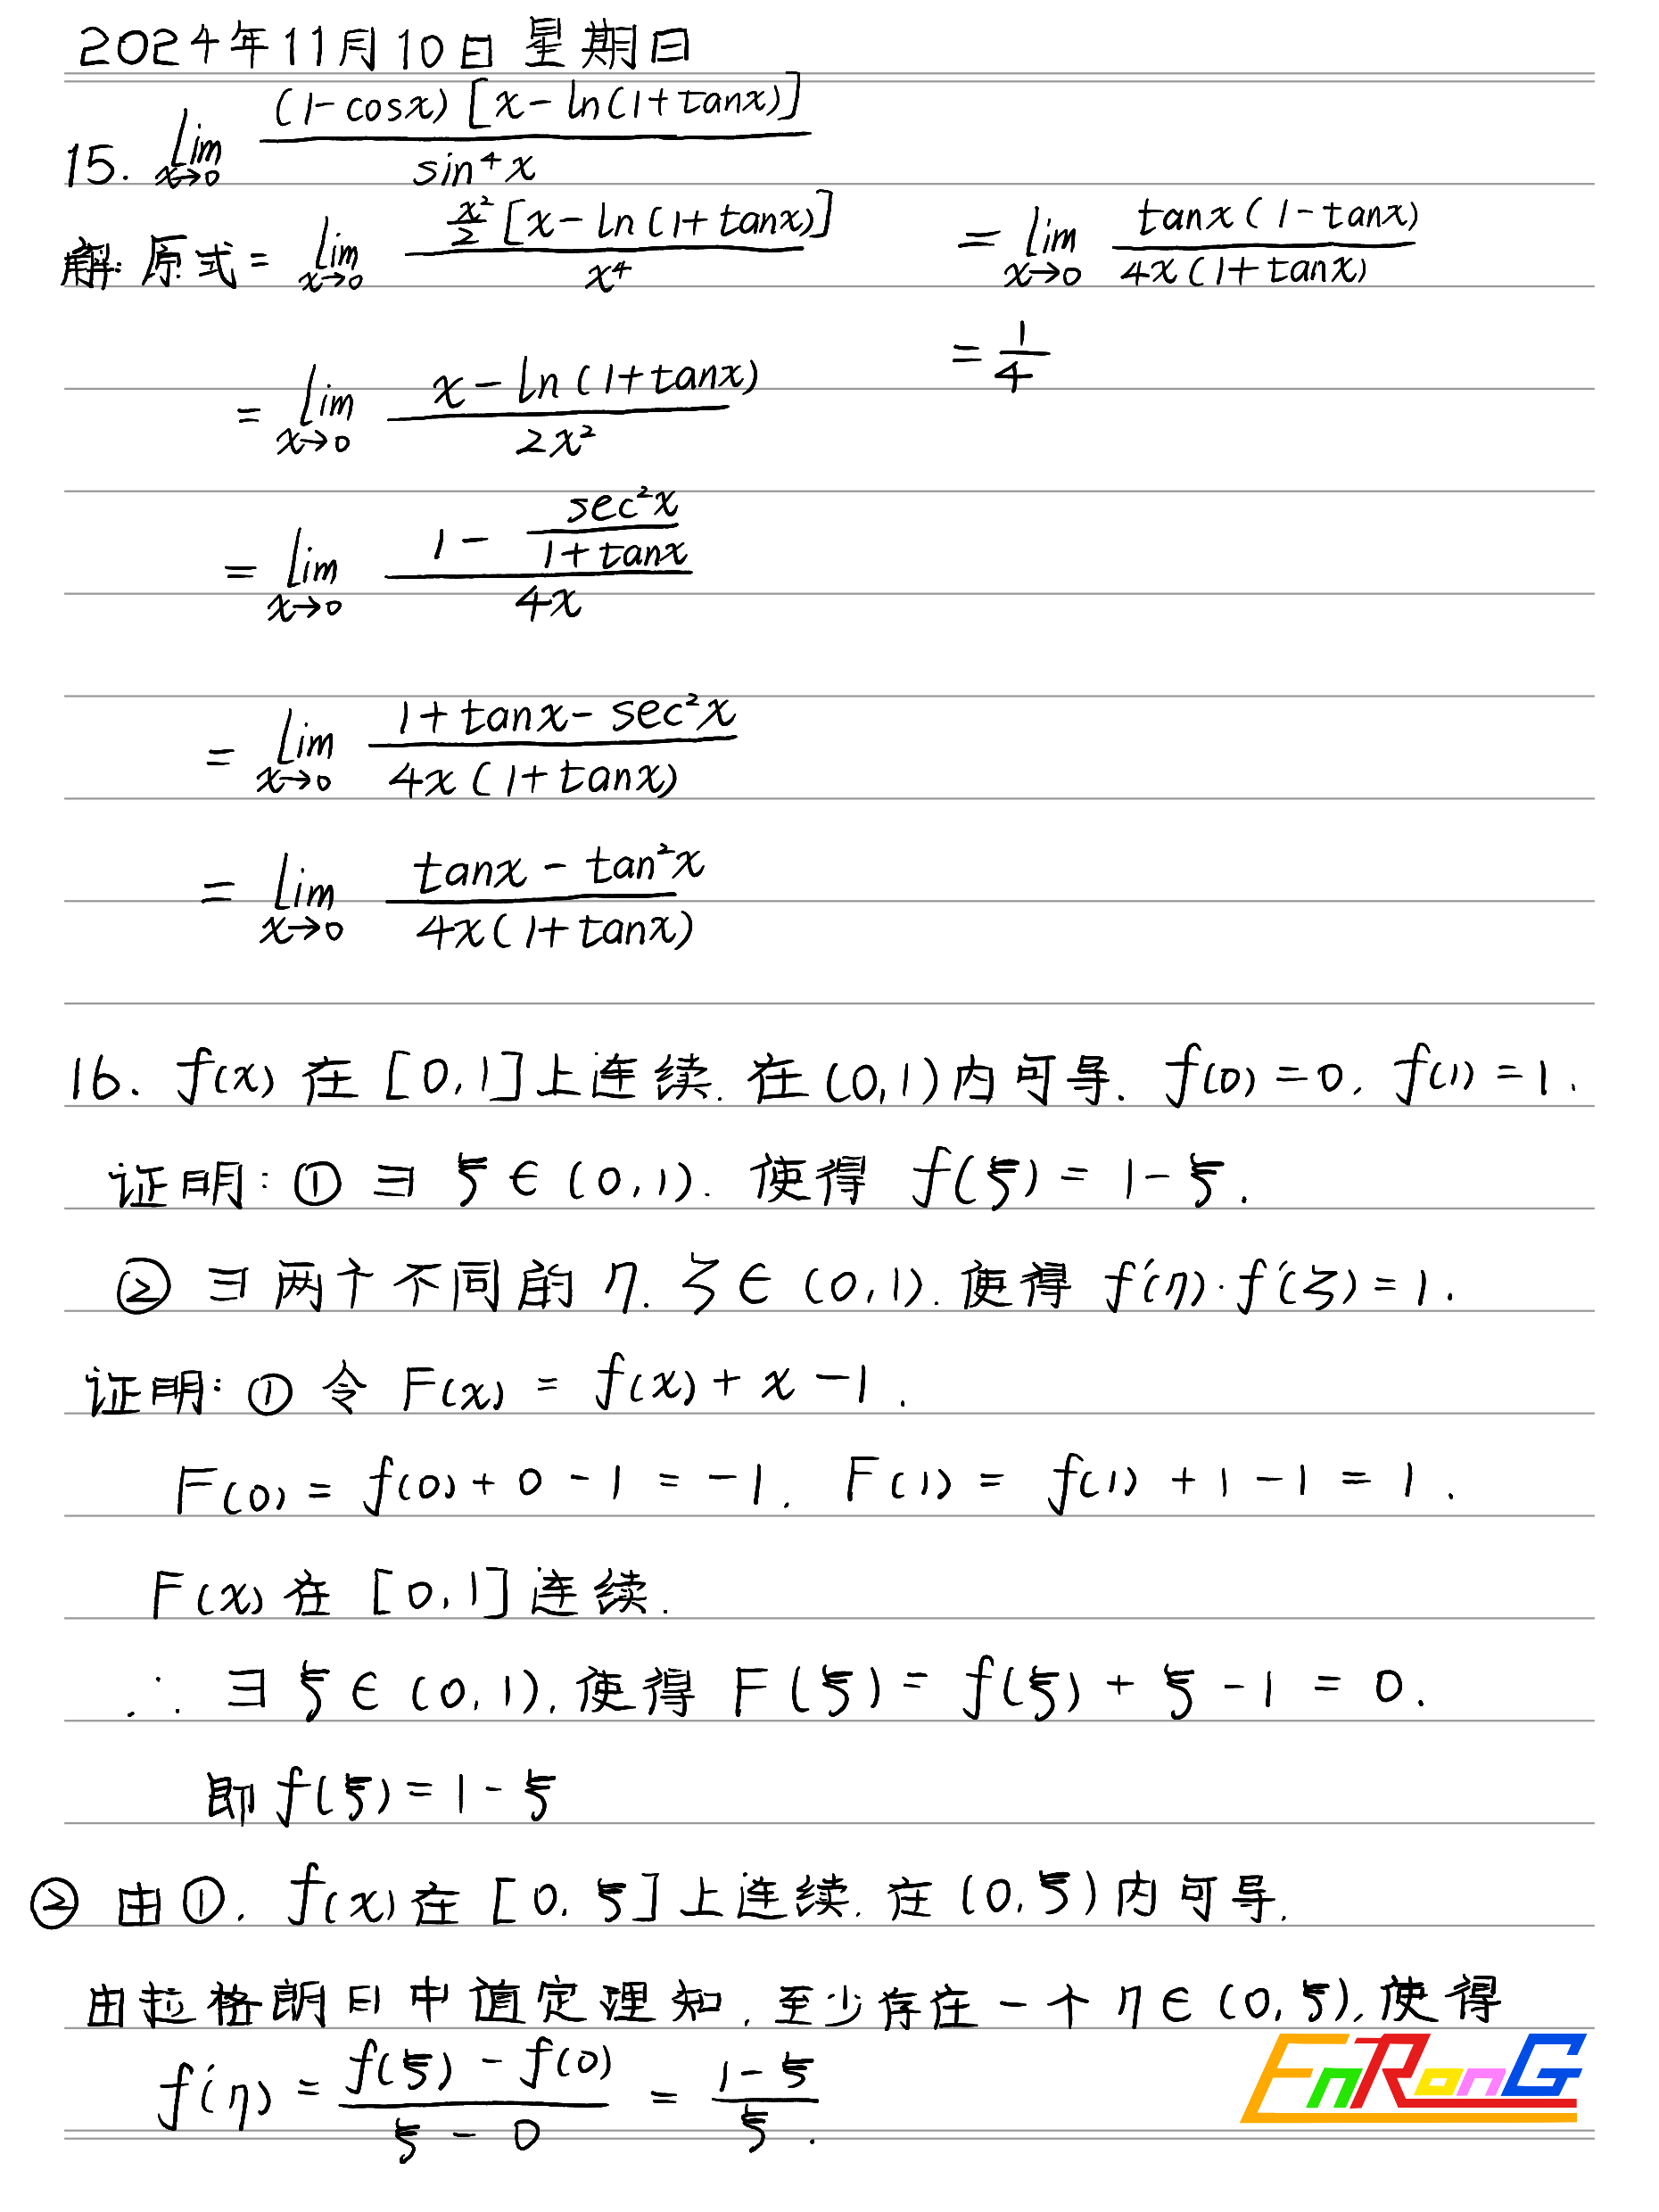 2024年11月10日 星期日
15. lim_{x→0} \frac{(1-cosx)[x-ln(1+tanx)]}{sin⁴x}
解: 原式 = lim_{x→0} \frac{\frac{x²}{2}[x-ln(1+tanx)]}{x⁴}
= lim_{x→0} \frac{x-ln(1+tanx)}{2x²}
= lim_{x→0} \frac{1-\frac{sec²x}{1+tanx}}{4x}
= lim_{x→0} \frac{1+tanx-sec²x}{4x(1+tanx)}
= lim_{x→0} \frac{tanx-tan²x}{4x(1+tanx)}
= lim_{x→0} \frac{tanx(1-tanx)}{4x(1+tanx)}
= \frac{1}{4}
16. f(x) 在 [0,1] 上连续. 在 (0,1) 内可导. f(0)=0. f(1)=1.
证明: ① ∃ ξ ∈ (0,1). 使得 f(ξ) = 1-ξ.
② ∃ 两个不同的 η. ζ ∈ (0,1). 使得 f'(η)·f'(ζ)=1.
证明: ① 令 F(x) = f(x) + x - 1.
F(0) = f(0) + 0 - 1 = -1. F(1) = f(1) + 1 - 1 = 1.
F(x) 在 [0,1] 连续.
∴ ∃ ξ ∈ (0,1), 使得 F(ξ) = f(ξ) + ξ - 1 = 0.
即 f(ξ) = 1 - ξ
② 由①. f(x) 在 [0, ξ] 上连续. 在 (0, ξ) 内可导.
由拉格朗日中值定理知. 至少存在一个 η ∈ (0, ξ), 使得
f'(η) = \frac{f(ξ) - f(0)}{ξ - 0} = \frac{1-ξ}{ξ}.
EnRonG